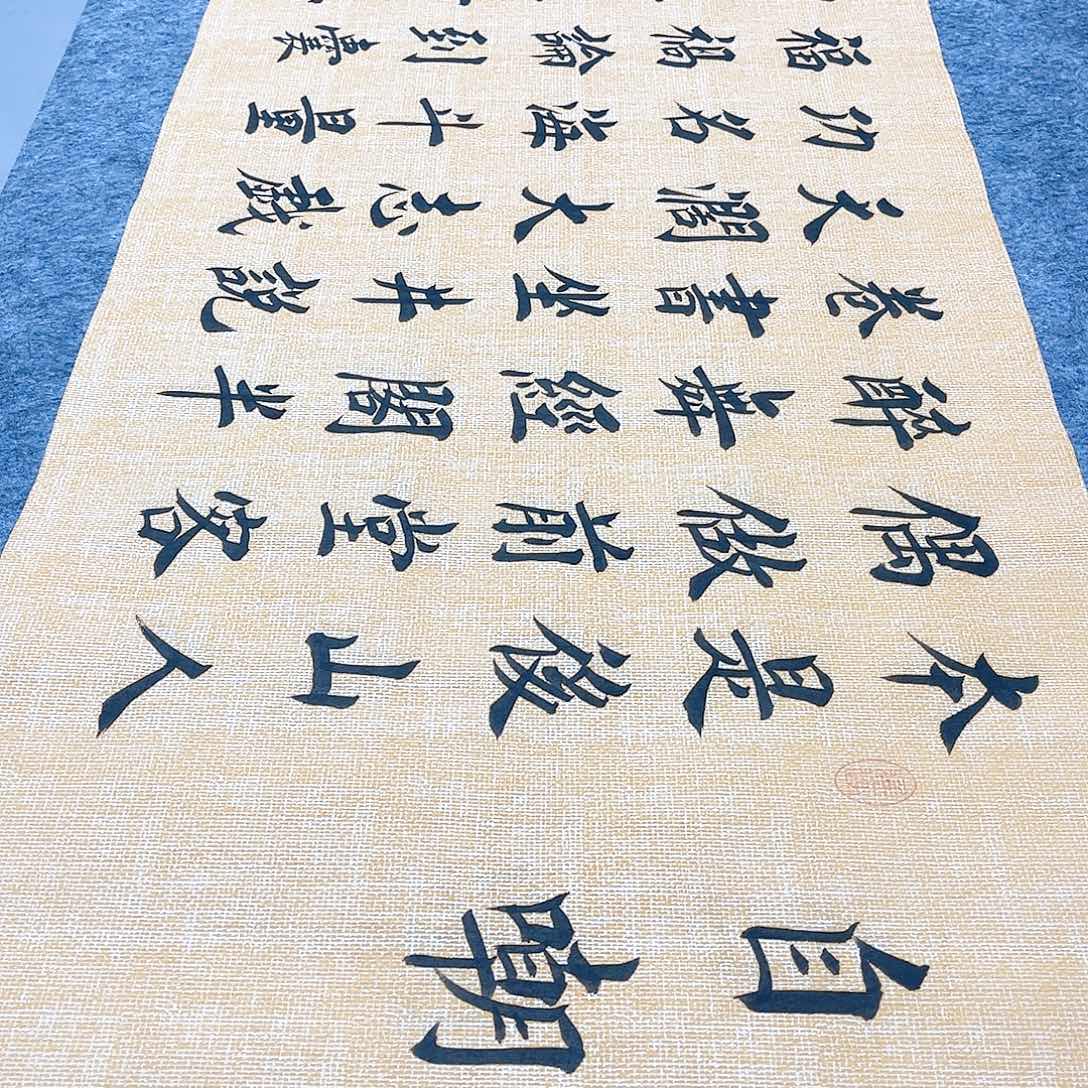 自嘲
本是後山人
偶做前堂客
醉舞經閣半
卷書坐井說
天闊大志戲
功名海斗量
福禍論到囊